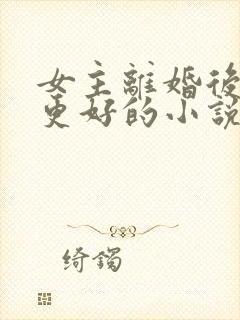 女主離婚後
更好的小說
绮鐲